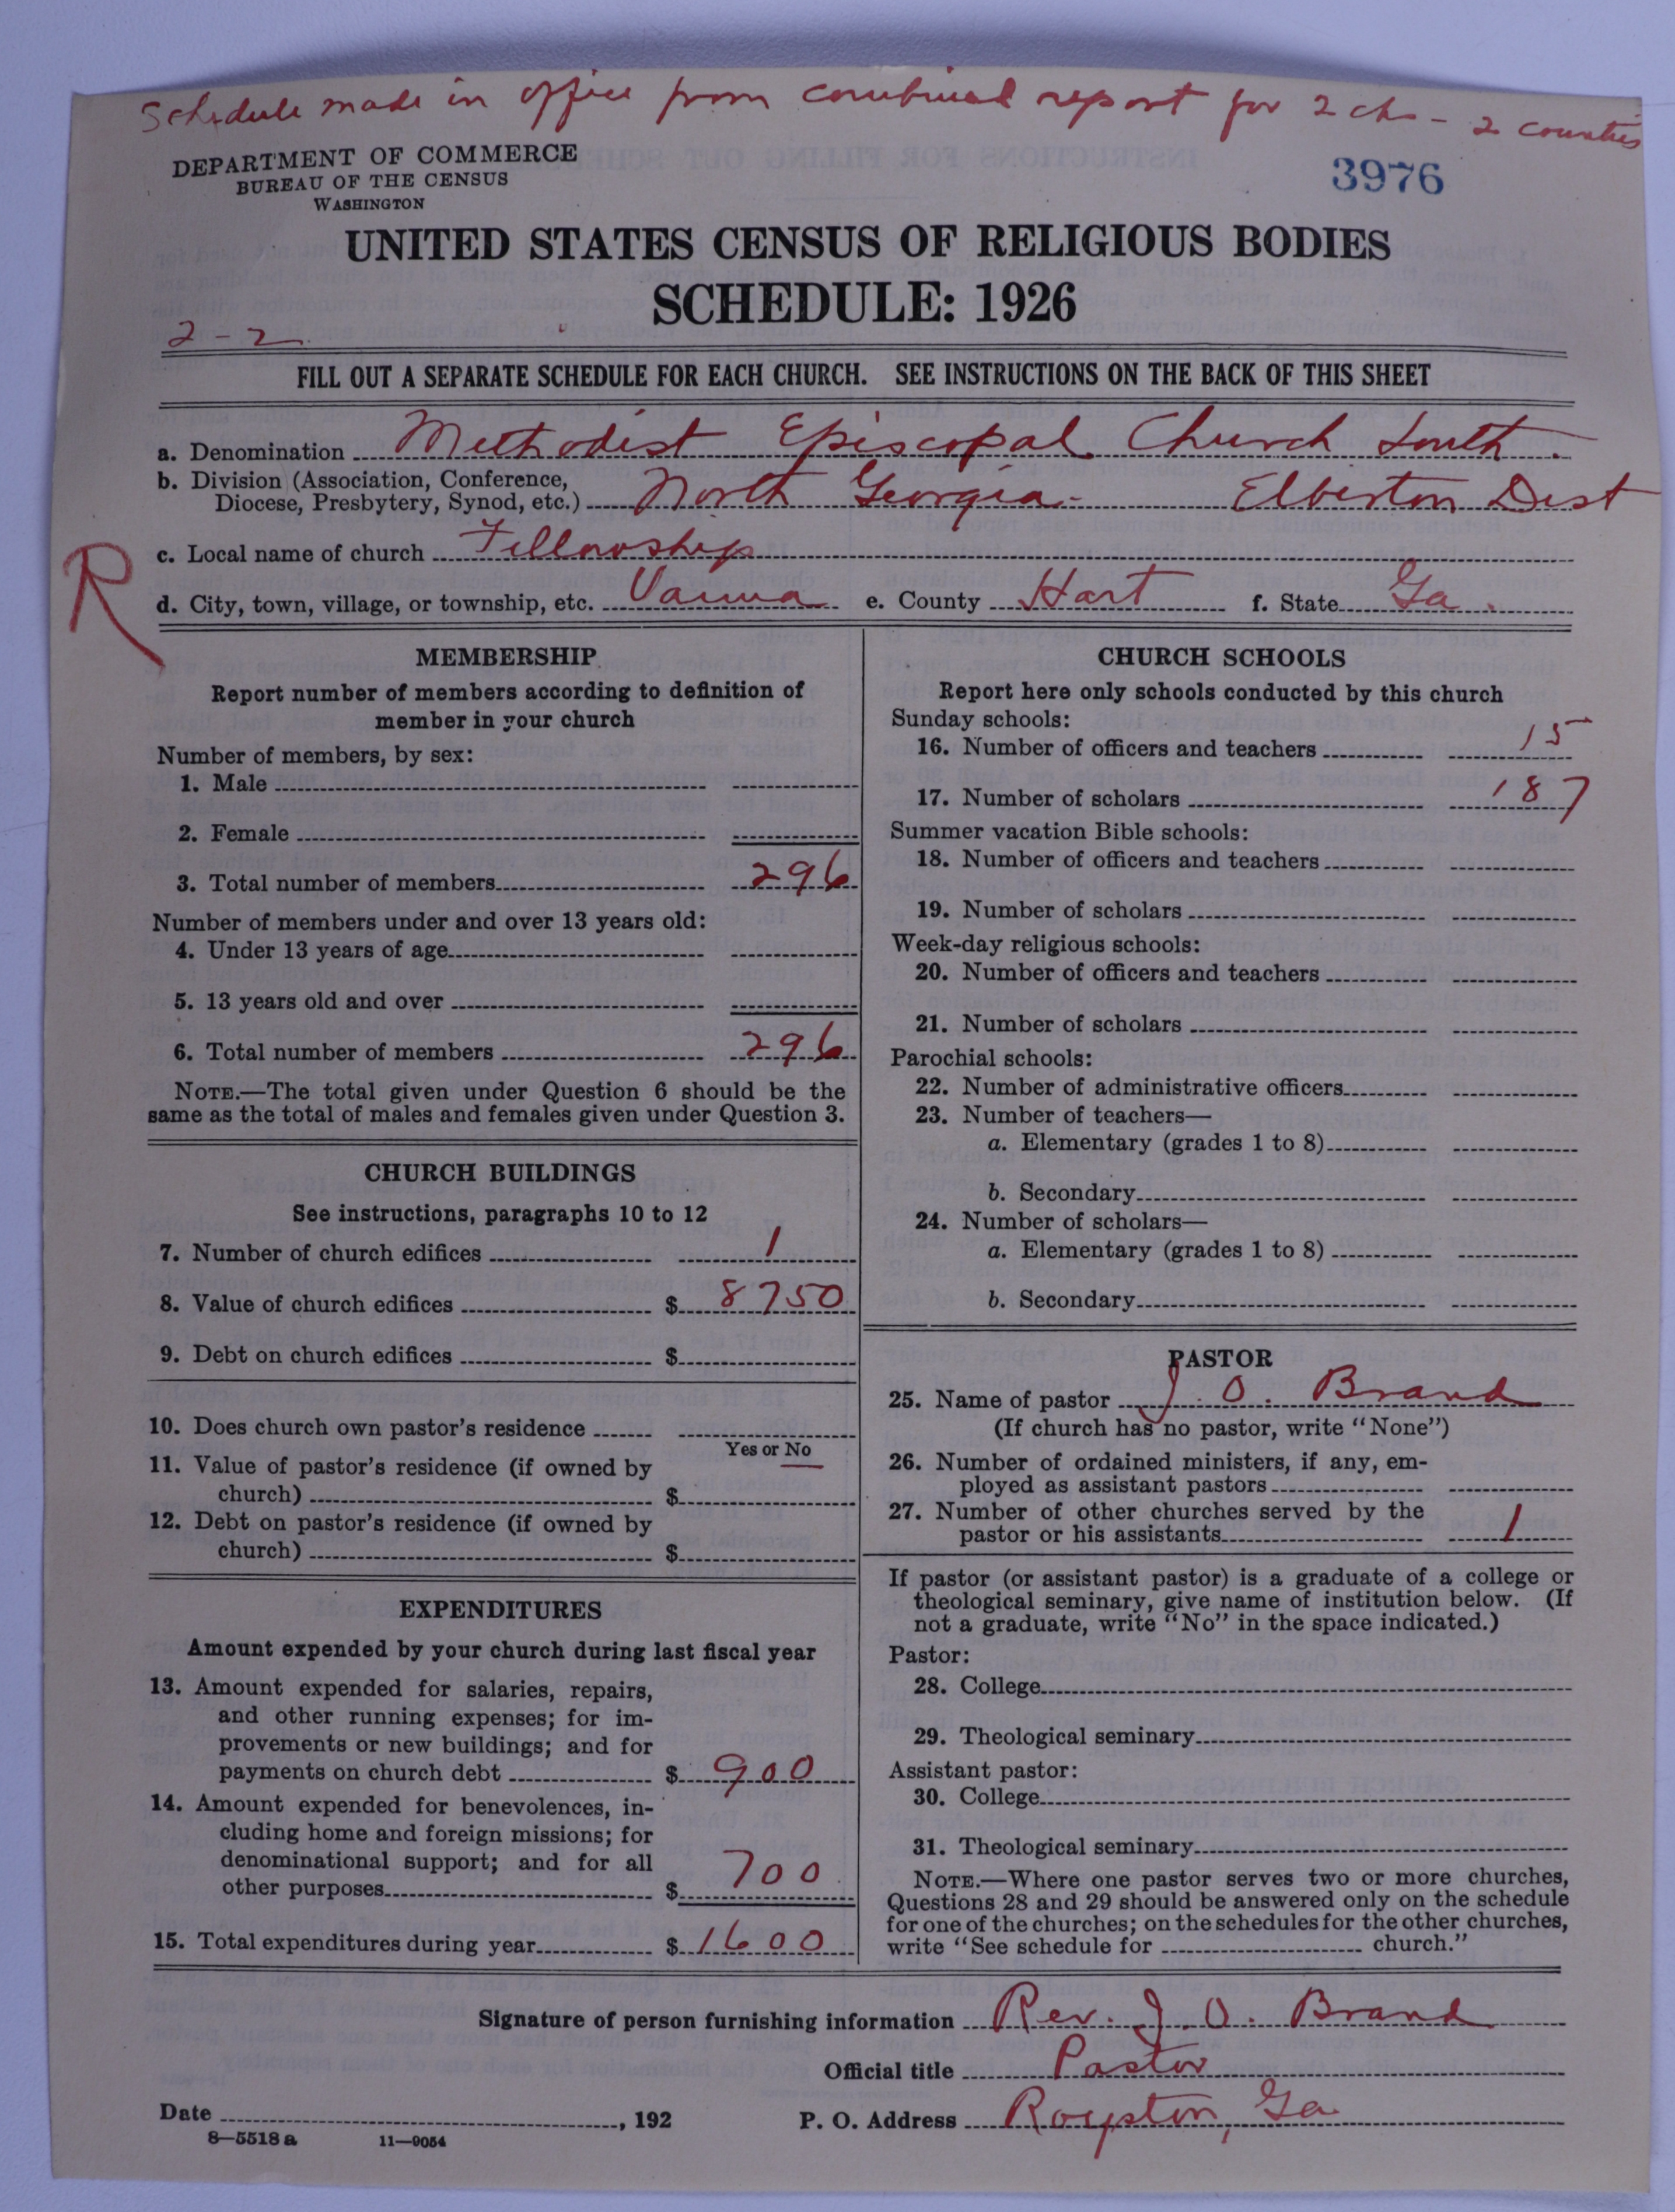 Schedule made in office from combined report for 2 chs - 2 counties
DEPARTMENT OF COMMERCE
BUREAU OF THE CENSUS
WASHINGTON
3976
UNITED STATES CENSUS OF RELIGIOUS BODIES
SCHEDULE: 1926
2-2
FILL OUT A SEPARATE SCHEDULE FOR EACH CHURCH. SEE INSTRUCTIONS ON THE BACK OF THIS SHEET
a. Denomination Methodist Episcopal Church South.
b. Division (Association, Conference,
Diocese, Presbytery, Synod, etc.) North Georgia - Elberton Dist
R
c. Local name of church Fellowship
d. City, town, village, or township, etc. Vanna e. County Hart f. State Ga.
MEMBERSHIP
Report number of members according to definition of
member in your church
Number of members, by sex:
1. Male
2. Female
3. Total number of members 296
Number of members under and over 13 years old:
4. Under 13 years of age
5. 13 years old and over
6. Total number of members 296
NOTE.—The total given under Question 6 should be the
same as the total of males and females given under Question 3.
CHURCH BUILDINGS
See instructions, paragraphs 10 to 12
7. Number of church edifices 1
8. Value of church edifices $ 8750
9. Debt on church edifices $
10. Does church own pastor's residence
Yes or No
11. Value of pastor's residence (if owned by
church) $
12. Debt on pastor's residence (if owned by
church) $
EXPENDITURES
Amount expended by your church during last fiscal year
13. Amount expended for salaries, repairs,
and other running expenses; for im-
provements or new buildings; and for
payments on church debt $ 900
14. Amount expended for benevolences, in-
cluding home and foreign missions; for
denominational support; and for all
other purposes $ 700
15. Total expenditures during year $ 1600
CHURCH SCHOOLS
Report here only schools conducted by this church
Sunday schools:
16. Number of officers and teachers 15
17. Number of scholars 187
Summer vacation Bible schools:
18. Number of officers and teachers
19. Number of scholars
Week-day religious schools:
20. Number of officers and teachers
21. Number of scholars
Parochial schools:
22. Number of administrative officers
23. Number of teachers—
a. Elementary (grades 1 to 8)
b. Secondary
24. Number of scholars—
a. Elementary (grades 1 to 8)
b. Secondary
PASTOR
25. Name of pastor J. O. Brand
(If church has no pastor, write "None")
26. Number of ordained ministers, if any, em-
ployed as assistant pastors
27. Number of other churches served by the
pastor or his assistants 1
If pastor (or assistant pastor) is a graduate of a college or
theological seminary, give name of institution below. (If
not a graduate, write "No" in the space indicated.)
Pastor:
28. College
29. Theological seminary
Assistant pastor:
30. College
31. Theological seminary
NOTE.—Where one pastor serves two or more churches,
Questions 28 and 29 should be answered only on the schedule
for one of the churches; on the schedules for the other churches,
write "See schedule for church."
Signature of person furnishing information Rev. J. O. Brand
Official title Pastor
Date , 192 P. O. Address Royston, Ga
8—5518 a 11—9054